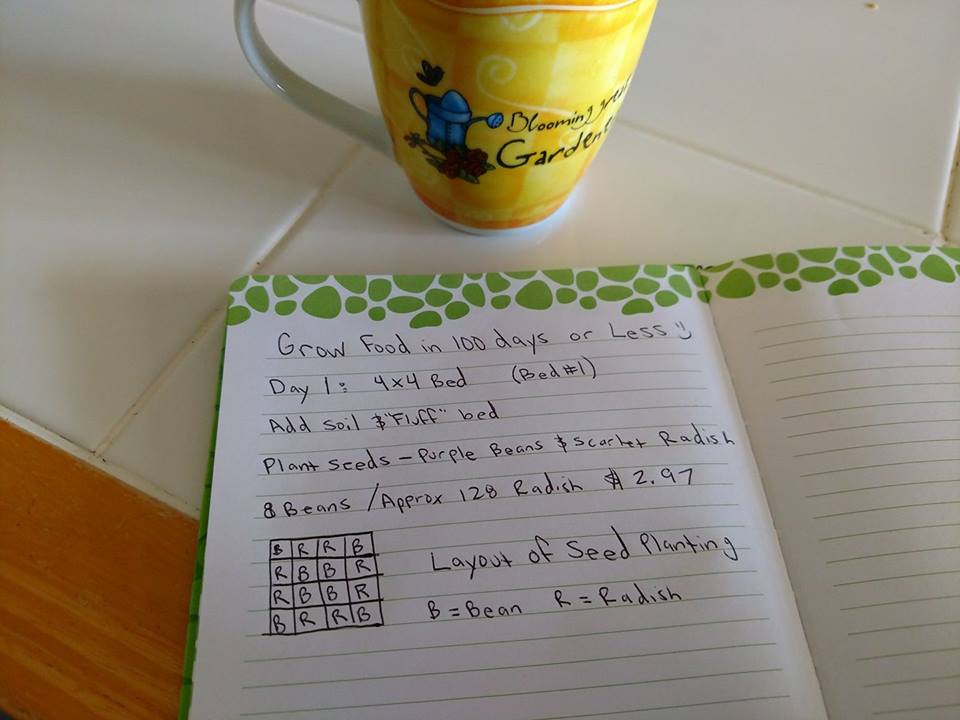 Blooming great
Gardene
Grow Food in 100 days or Less
Day 1: 4x4 Bed (Bed #1)
Add soil & "Fluff" bed
Plant Seeds - Purple Beans & Scarlet Radish
8 Beans / Approx 128 Radish $ 2.97
B R R B
R B B R
R B B R
B R R B
Layout of Seed Planting
B = Bean R = Radish